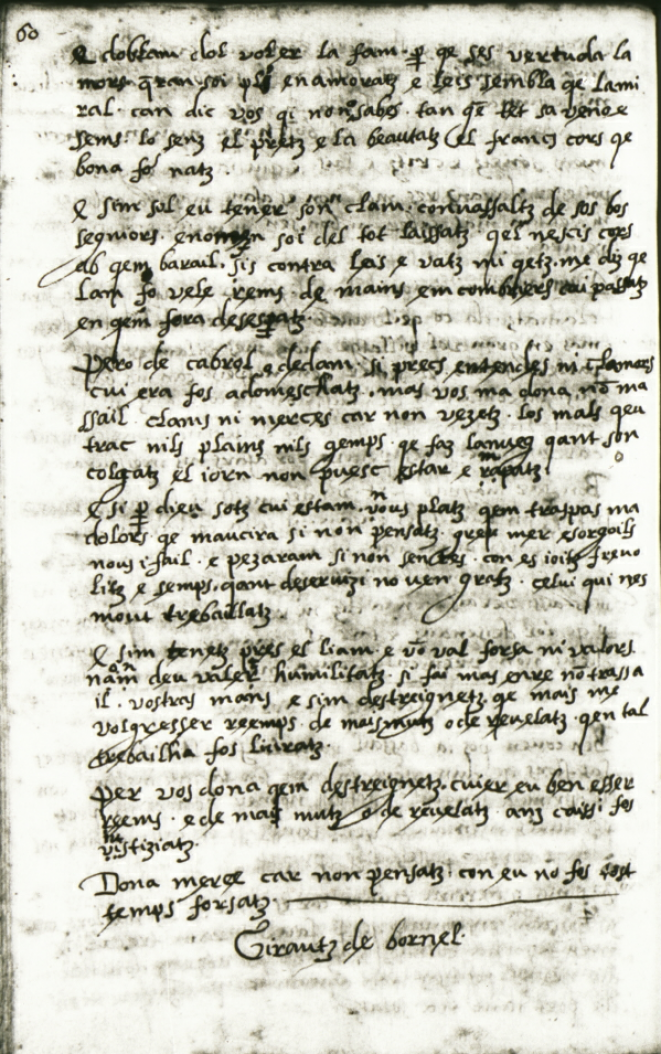 60
E doblam dol voler la fam. p̄ qe ses vertuda la
mors. qran soi pl9 enamoratz e leis sembla qe lami
ral. can dic vos qi non sabes. tan qe tot sa
sems. lo senz el pretz e la beautatz el francs cors qe
bona fos natz
E sim sol eu tener son clam. con vassaltz de sos bos
segniors. enom soi del tot laissatz qel nescis cors
ab qem barail. sis contra leis e vatz mi getz. me diz qe
lam fo vele rems de mains em pasatz
en qem fora desesp̄atz.
Pero de cabrol e declam. si precs entendes ni clamors
cui era fos adomeschatz. mas vos ma dona nō ma
ssail. clams ni merces car non vezetz. los mals qeu
trac nils plains nils gemps. qe faz la nueg qant son
colgatz el iorn non puesc estar e rapatz.
E si p̄ dieu sotz cui estam. nous platz qem traspas ma
dolors qe maucira si non pensatz. greu mer esorgoils
nous i fail. e pezaram si non sentes. con es ioitz frevo
litz e semps. qant deseruizi no uen gratz. celui qui nes
mout trebaillatz.
E sim tenetz pres el liam. e vō val forsa ni valors
nam deu valer humilitatz. si fai mas enre nō trassa
il. vostras mans e sim destreignetz qe mais me
volgresser reemps. de mais mutz o de revelatz. qen tal
trebailha fos liuratz.
Per vos dona qem destreignetz. cuier eu ben esser
reems. e de mais mutz o de reuelatz anz caissi fos
iustiziatz.
Dona merce car non pensatz. con eu no fos tost
temps forsatz.
Girautz de bornel.